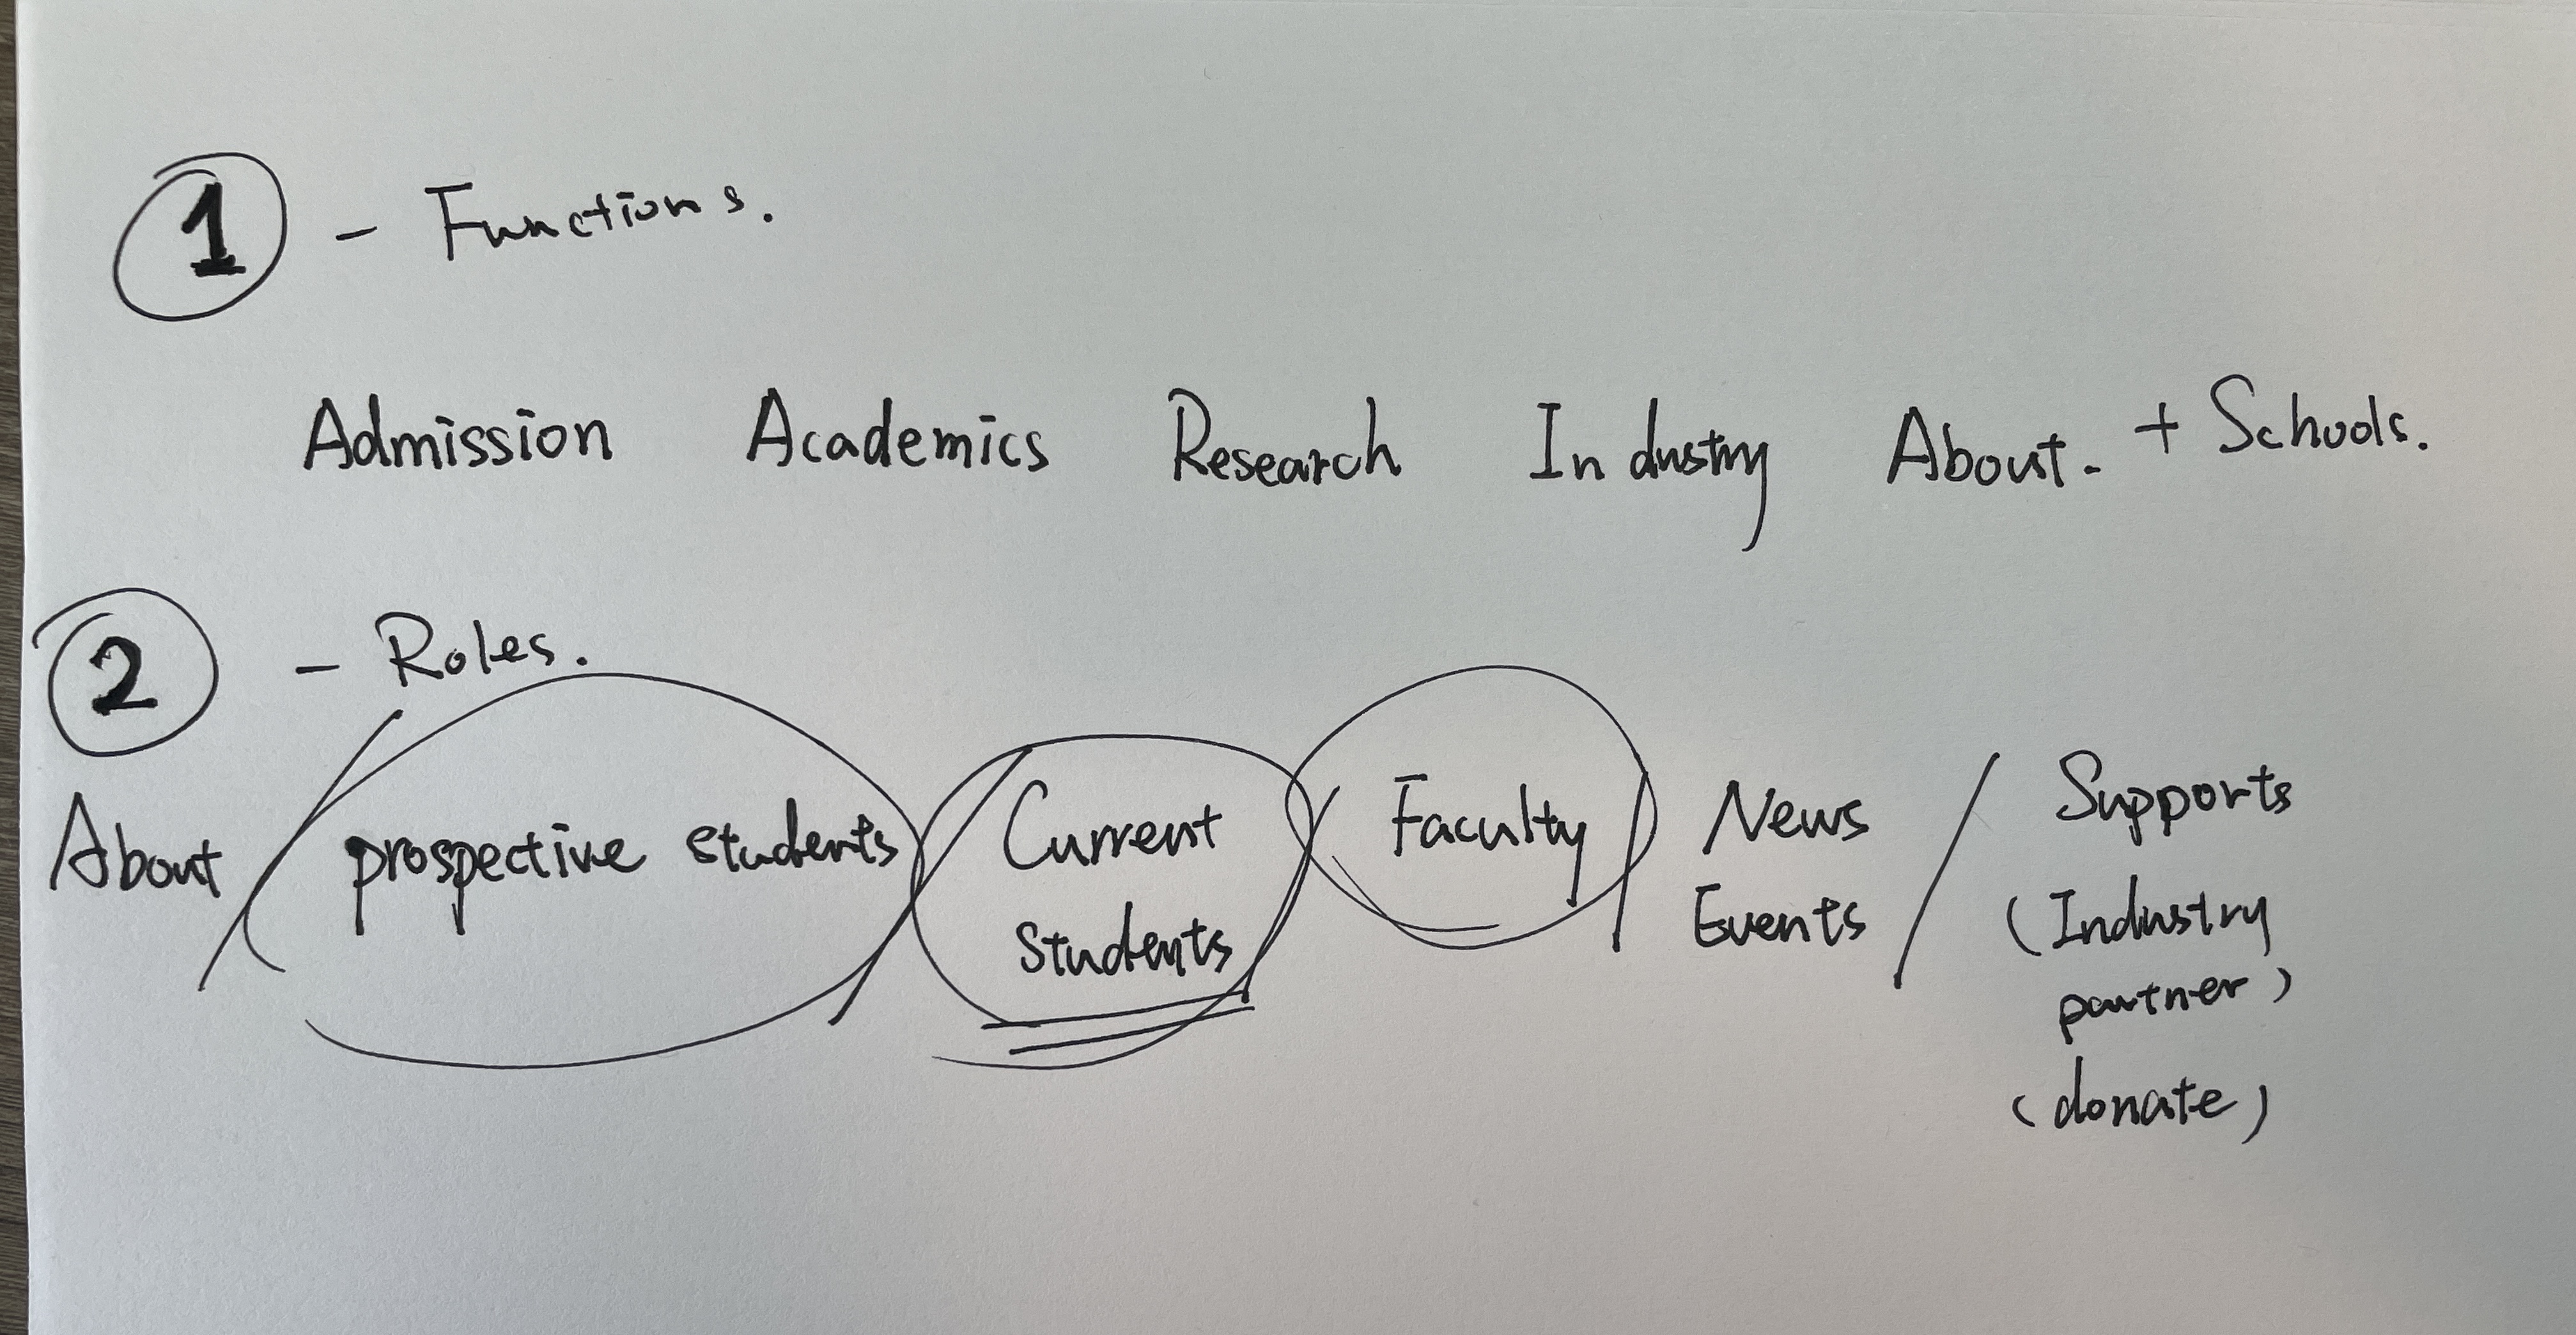 1 - Functions.
Admission Academics Research Industry About. + Schools.
2 - Roles.
About / prospective students / Current Students / Faculty / News Events / Supports
(Industry
partner)
(donate)